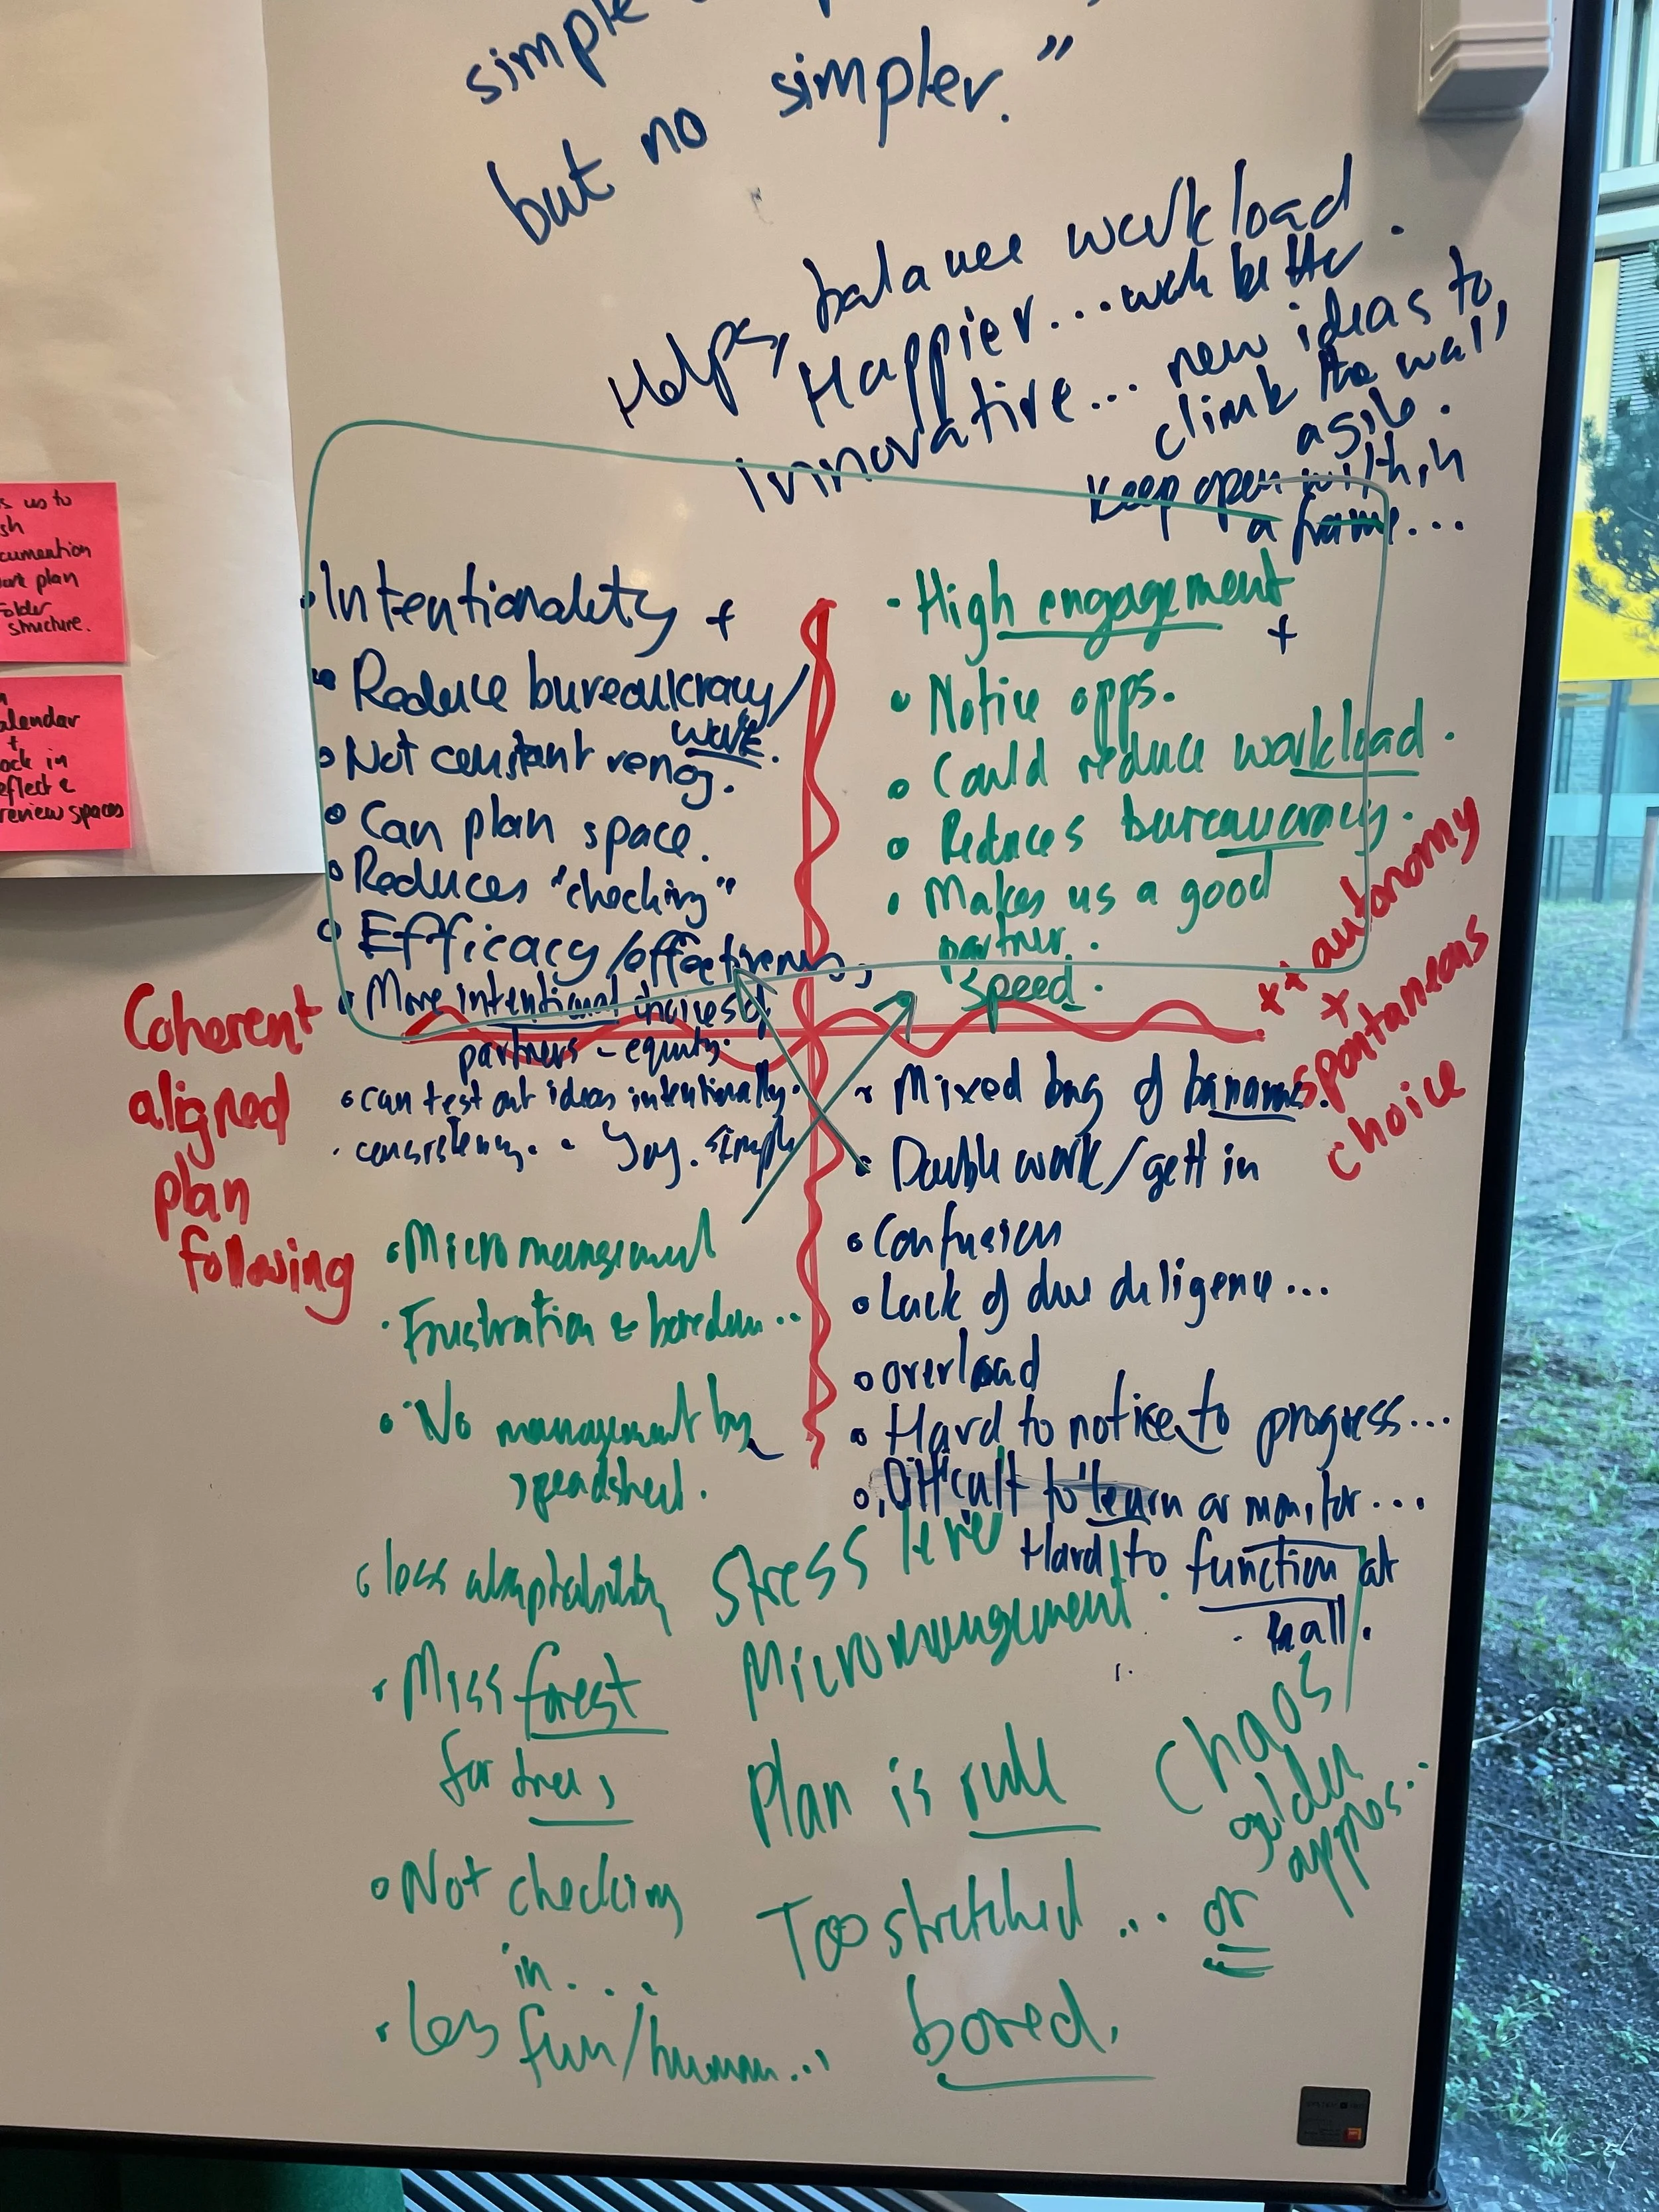 simple
but no simpler."
Helps, balance workload.
Happier... work better
Innovative... new ideas to
climb the wall
agile.
Keep open within
a frame...
s us to
sh
cumention
ork plan
older
structure.
alendar
+
ock in
eflect &
review spaces
• Intentionality +
• Reduce bureaulcracy/
work.
• Not constant reneg.
• Can plan space.
• Reduces "checking"
• Efficacy/effectiveness
• More intentional choices of
partners - equity.
• can test out ideas intentionally.
• consistency. • Yay. simple
• High engagement
+
• Notice opps.
• Could reduce workload.
• Reduces bureaucracy.
• Makes us a good
partner.
Speed.
Coherent
aligned
plan
following
++ autonomy
+ spontaneous
choice
• Micromanagement
• Frustration & boredom...
• No management by
spreadsheet.
• less adaptability
• Miss forest
for trees
• Not checking
in....
• Less fun/human...
• Mixed bag of bananas.
• Double work/gett in
• Confusion
• Lack of due diligence...
• overload
• Hard to notice to progress...
• Difficult to learn or monitor...
Hard to function at
• hall.
Stress level
Micromanagement.
Plan is rule
Chaos/
golden
apples...
Too stretched... or
bored.